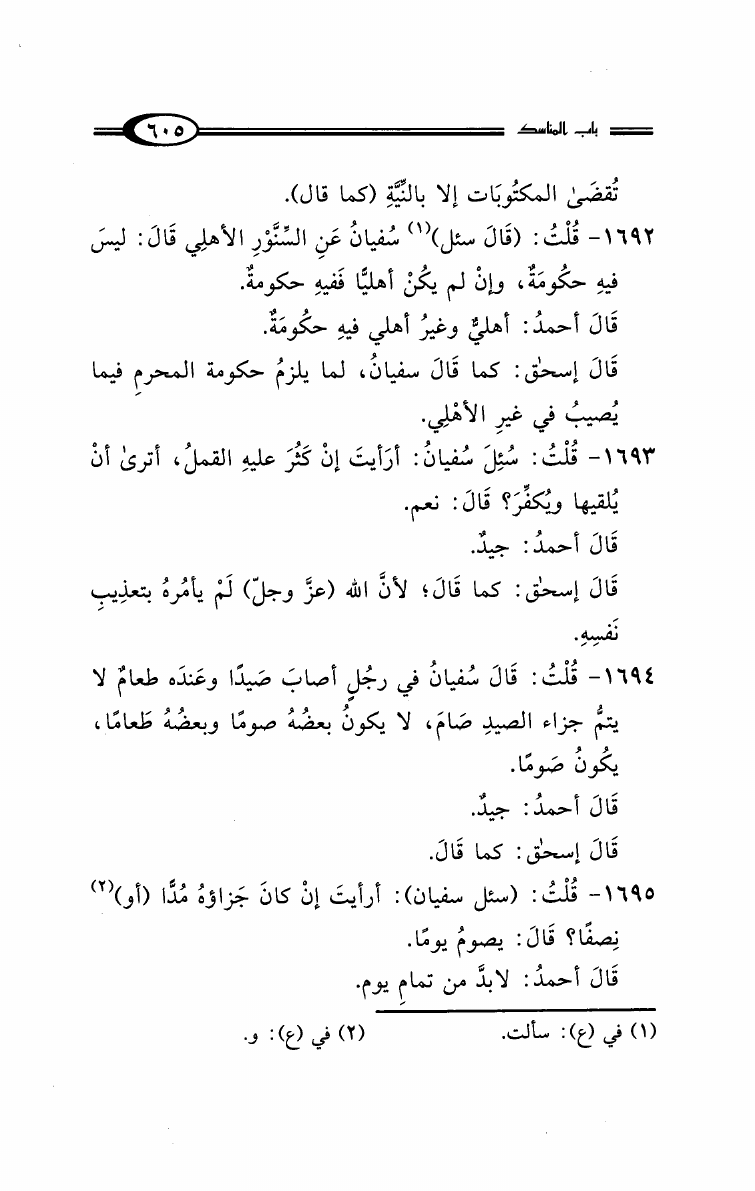 باب المناسك ٦٠٥
تُقضَىٰ المكتُوبَات إلا بالنِّيَّةِ (كما قال).
١٦٩٢- قُلْتُ: (قَالَ سئل)(١) سُفيانُ عَنِ السِّنَّوْرِ الأهلِي قَالَ: ليسَ
فيهِ حكُومَةٌ، وإنْ لم يكُنْ أهليًّا فَفيهِ حكومةٌ.
قَالَ أحمدُ: أهليٌّ وغيرُ أهلي فيهِ حكُومَةٌ.
قَالَ إسحٰق: كما قَالَ سفيانُ، لما يلزمُ حكومة المحرمِ فيما
يُصيبُ في غيرِ الأهْلِي.
١٦٩٣- قُلْتُ: سُئِلَ سُفيانُ: أرَأيتَ إنْ كَثُرَ عليهِ القملُ، أترىٰ أنْ
يُلقيها ويُكفِّرَ؟ قَالَ: نعم.
قَالَ أحمدُ: جيدٌ.
قَالَ إسحٰق: كما قَالَ؛ لأنَّ الله (عزَّ وجلّ) لَمْ يأمُرهُ بتعذِيبِ
نَفسِهِ.
١٦٩٤- قُلْتُ: قَالَ سُفيانُ في رجُلٍ أصابَ صَيدًا وعَندَه طعامٌ لا
يتمُّ جزاء الصيدِ صَامَ، لا يكونُ بعضُهُ صومًا وبعضُهُ طَعامًا،
يكُونُ صَومًا.
قَالَ أحمدُ: جيدٌ.
قَالَ إسحٰق: كما قَالَ.
١٦٩٥- قُلْتُ: (سئل سفيان): أرأيتَ إنْ كانَ جَزاؤهُ مُدًّا (أو)(٢)
نِصفًا؟ قَالَ: يصومُ يومًا.
قَالَ أحمدُ: لابدَّ من تمامِ يوم.
(١) في (ع): سألت. (٢) في (ع): و.